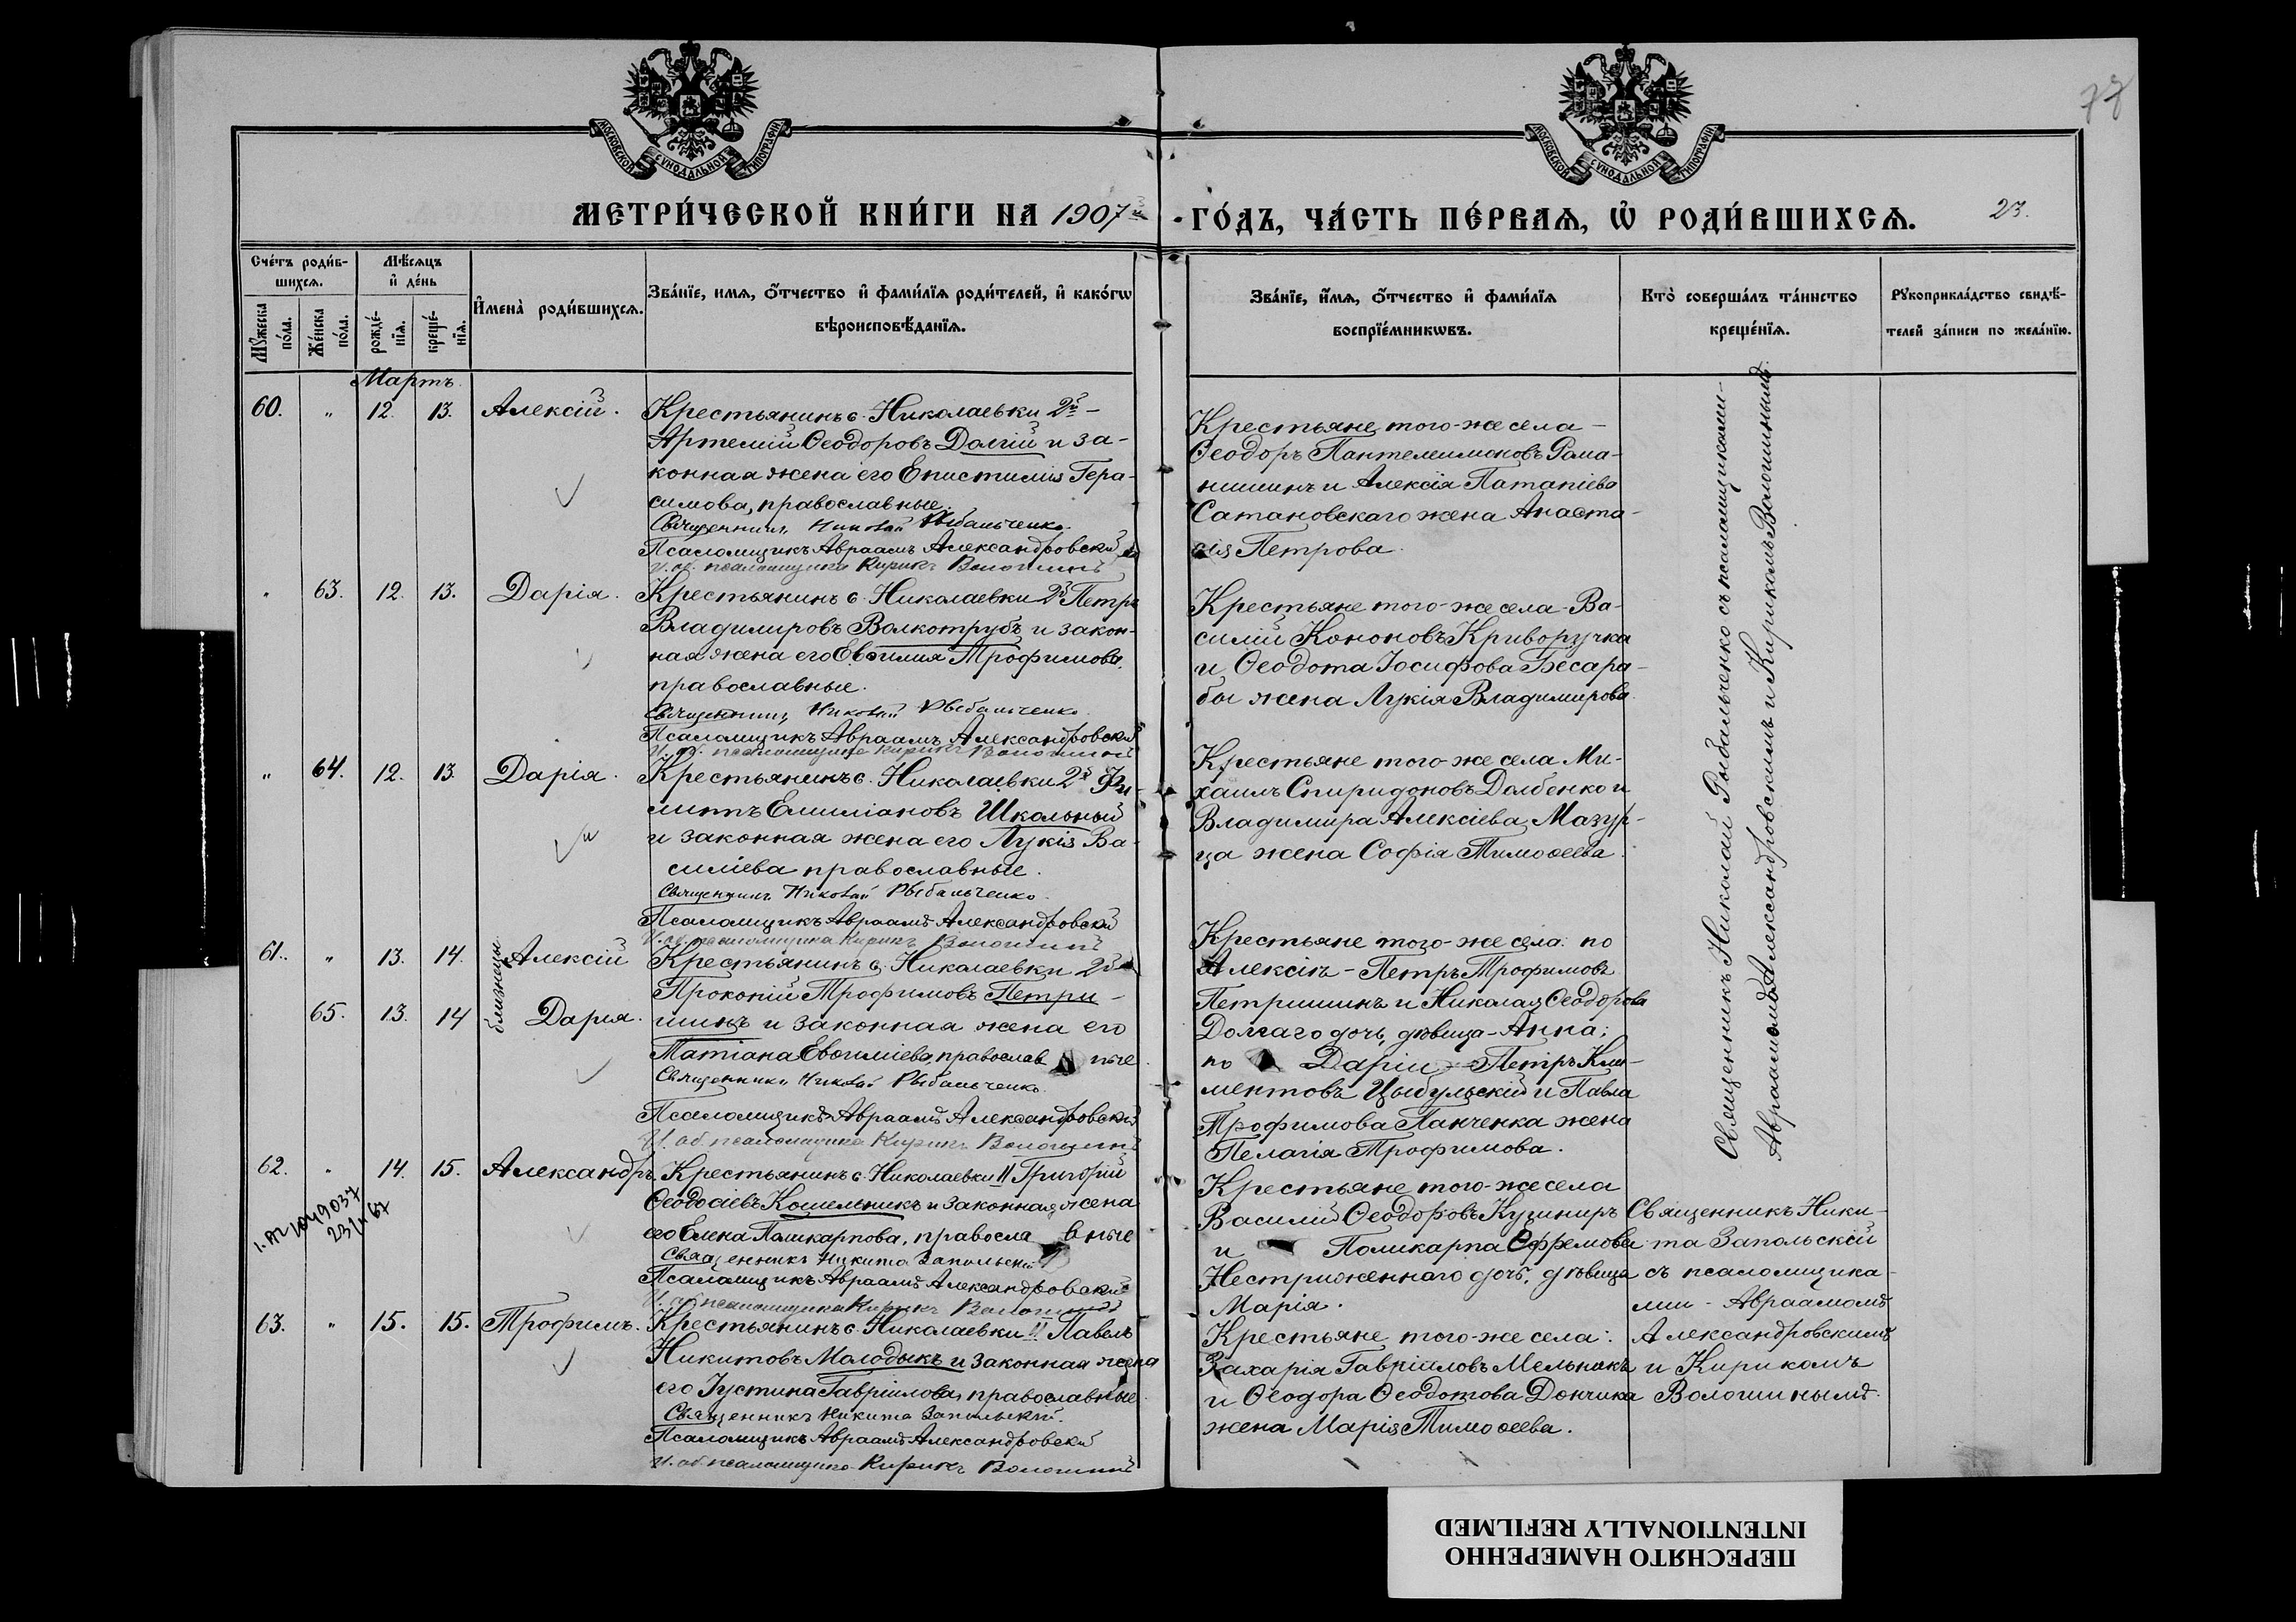 77
МОСКОВСКОЙ СѴНОДАЛЬНОЙ ТИПОГРАФІИ
МОСКОВСКОЙ СѴНОДАЛЬНОЙ ТИПОГРАФІИ
МЕТРИ́ЧЕСКОЙ КНИ́ГИ НА 1907й ГО́ДЪ, ЧА́СТЬ ПЕ́РВАѦ, Ѡ҆ РОДИ́ВШИХСѦ. 23.
Сче́тъ роди́в-
шихсѧ.
Мꙋ́жеска по́ла.
Же́нска по́ла.
Мѣ́сѧцъ
и҆ де́нь
рожде́-
нїѧ.
креще́-
нїѧ.
И҆мена̀ роди́вшихсѧ.
Зва́нїе, имѧ, ѻ҆́тчество и҆ фамилїѧ роди́телей, и҆ како́гѡ
вѣроисповѣ́данїѧ.
Зва́нїе, и҆́мѧ, ѻ҆́тчество и҆ фами́лїѧ
воспрїе́мникѡвъ.
Кто̀ соверша́лъ та́инство
креще́нїѧ.
Рꙋкоприкла́дство свидѣ́-
телей за́писи по жела́нїю.
Мартъ.
60. " 12. 13. Алексій.
Крестьянинъ с. Николаевки 2й -
Артемій Ѳеодоровъ Долгій и за-
конная жена его Епистимія Гера-
симова, православные.
Священникъ Николай Рыбальченко.
Псаломщикъ Авраамъ Александровскій
И. об. псаломщика Кирикъ Волошинъ
Крестьяне того-же села -
Ѳеодоръ Пантелеимоновъ Рома-
нишинъ и Алексія Патапіева
Сатановскаго жена Анаста-
сія Петрова.
" 63. 12. 13. Дарія.
Крестьянинъ с. Николаевки 2й Петръ
Владимировъ Волкотрубъ и закон-
ная жена его Евѳимия Трофимова,
православные.
Священникъ Николай Рыбальченко
Псаломщикъ Авраамъ Александровскій
И. об. псаломщика Кирикъ Волошинъ
Крестьяне того-же села-Ва-
силій Кононовъ Криворучка
и Ѳеодота Іосифова Бесара-
бы жена Лукія Владимирова.
" 64. 12. 13. Дарія.
Крестьянинъ с. Николаевки 2й Фи-
липъ Емиліановъ Школьный
и законная жена его Лукія Ва-
силіева православные.
Священникъ Николай Рыбальченко
Псаломщикъ Авраамъ Александровскій
И. об. псаломщика Кирикъ Волошинъ
Крестьяне того же села Ми-
хаилъ Спиридоновъ Долбенко и
Владимира Алексіева Мазур-
ца жена Софія Тимоѳеева.
61. " 13. 14. Алексій
65. 13. 14 Дарія.
близнецы
Крестьянинъ с. Николаевки 2й
Прокопій Трофимовъ Петри-
шинъ и законная жена его
Татіана Евѳиміева православ ные.
Священникъ Николай Рыбальченко.
Псаломщикъ Авраамъ Александровскій
И. об. псаломщика Кирикъ Волошинъ
Крестьяне того-же села: по
Алексію - Петръ Трофимовъ
Петришинъ и Николая Ѳеодорова
Долгаго дочь, дѣвица - Анна;
по Даріи - Петръ Кли-
ментовъ Цыбульскій и Павла
Трофимова Панченка жена
Пелагія Трофимова.
Священникъ Николай Рыбальченко съ псаломщиками -
Авраамомъ Александровскимъ и Кирикомъ Волошинымъ.
62. " 14. 15. Александръ.
23/
Крестьянинъ с. Николаевки II Григорій
Ѳеодосіевъ Кошельникъ и законная жена
его Елена Поликарпова, правосла вные
Священникъ Никита Запольскій
Псаломщикъ Авраамъ Александровскій
И. об. псаломщика Кирикъ Волошинъ
Крестьяне того-же села
Василій Ѳеодоровъ Кушниръ
и Поликарпа Ефремова
Нестриженнаго дочь, дѣвица
Марія.
Священникъ Ники-
та Запольскій
съ псаломщика-
ми - Авраамомъ
Александровскимъ
и Кирикомъ
Волошинымъ.
63. " 15. 15. Трофимъ.
Крестьянинъ с. Николаевки II Павелъ
Никитовъ Молодыкъ и законная жена
его Іустина Гавріилова, православные.
Священникъ Никита Запольскій.
Псаломщикъ Авраамъ Александровскій
И. об. псаломщика Кирикъ Волошинъ
Крестьяне того-же села:
Захарія Гавріиловъ Мельникъ
и Ѳеодора Ѳеодотова Дончика
жена Марія Тимоѳеева.
ПЕРЕСНЯТО НАМЕРЕННО
INTENTIONALLY REFILMED